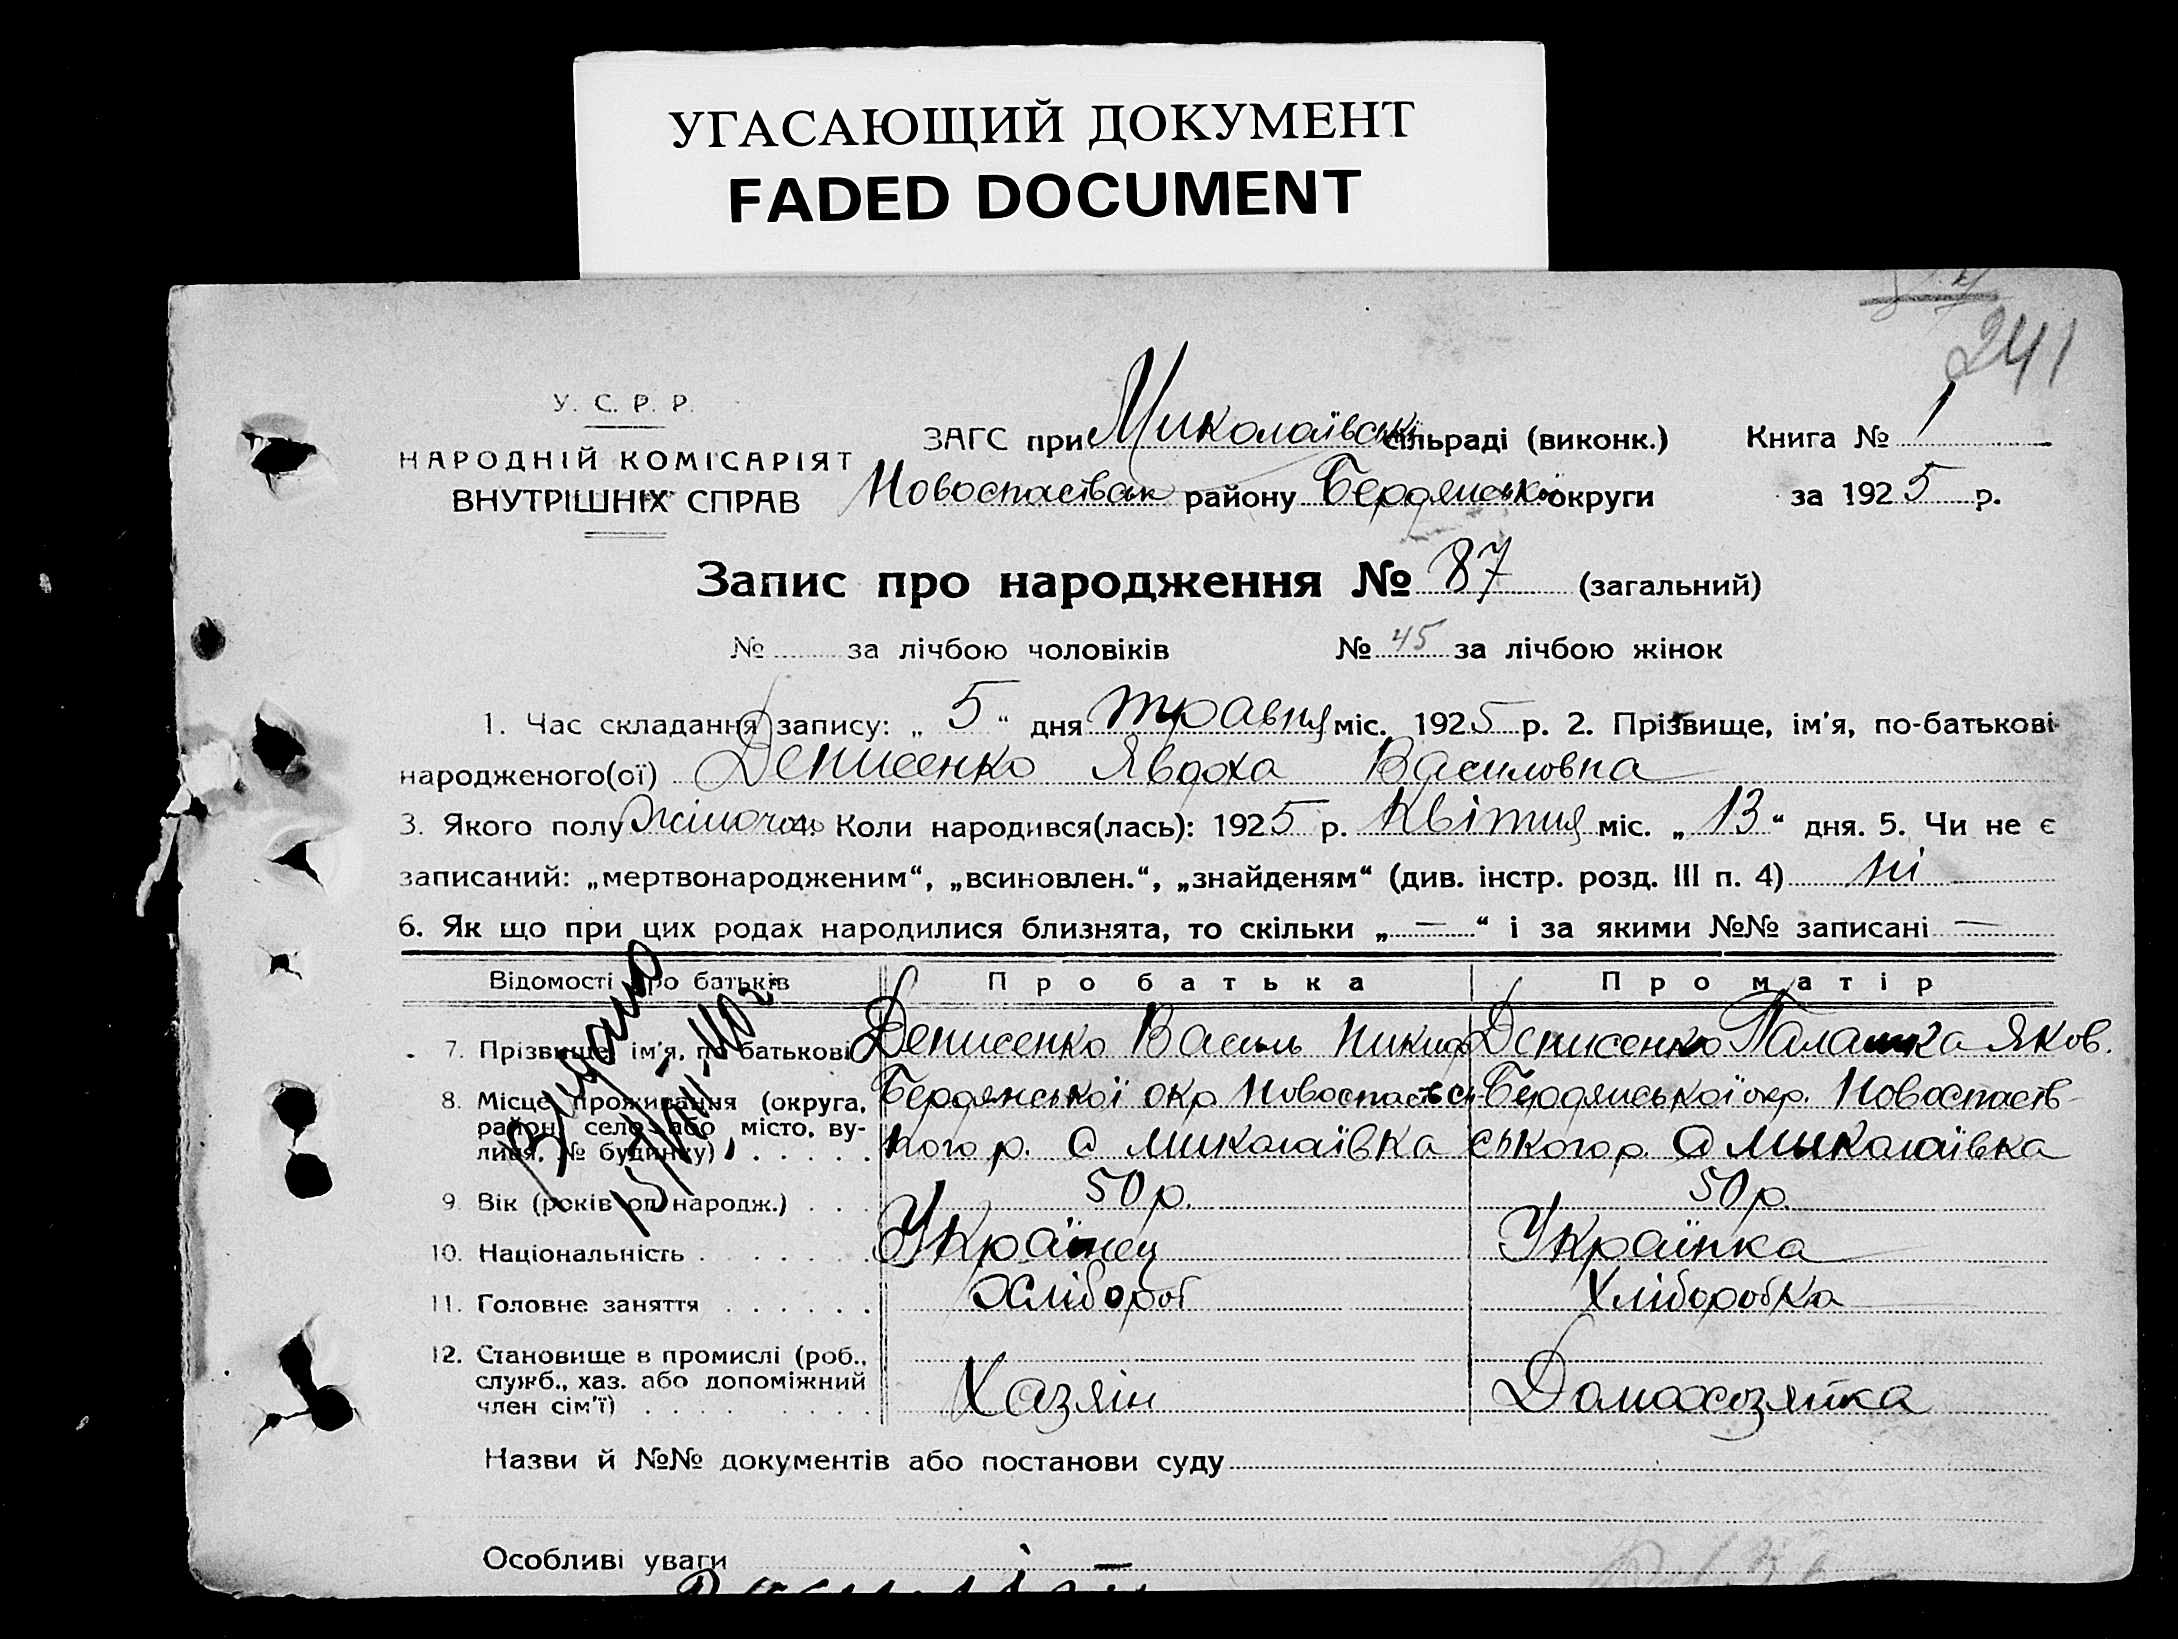 УГАСАЮЩИЙ ДОКУМЕНТ
FADED DOCUMENT
241
У. С. Р. Р.
НАРОДНІЙ КОМІСАРІЯТ
ВНУТРІШНІХ СПРАВ
ЗАГС при Миколаївські сільраді (виконк.) Книга № 1
Новоспасівськ району Бердянської округи за 1925 р.
Запис про народження № 87 (загальний)
№ за лічбою чоловіків № 45 за лічбою жінок
1. Час складання запису: „ 5 “ дня травня міс. 1925 р. 2. Прізвище, ім'я, по-батькові
народженого(ої) Денисенко Явдоха Василовна
3. Якого полу жіночого 4. Коли народився(лась): 1925 р. Квітня міс. „ 13 “ дня. 5. Чи не є
записаний: „мертвонародженим“, „всиновлен.“, „знайденям“ (див. інстр. розд. III п. 4) ні
6. Як що при цих родах народилися близнята, то скільки „ — “ і за якими №№ записані —
Відомості про батьків Про батька Про матір
7. Прізвище, ім'я, по батькові Денисенко Василь Никиф Денисенко Палашка Яков.
8. Місце проживання (округа, район, село або місто, вулиця, № будинку)
Бердянської окр Новоспасівсь- Бердянської окр. Новоспасів-
кого р. с Миколаївка ського р. с Миколаївка
9. Вік (років од народж.) 50 р. 50 р.
10. Національність Українец Українка
11. Головне заняття Хлібороб Хліборобка
12. Становище в промислі (роб., служб., хаз. або допоміжний член сім'ї) Хазяін Домохозяйка
Видано
Назви й №№ документів або постанови суду
Особливі уваги —